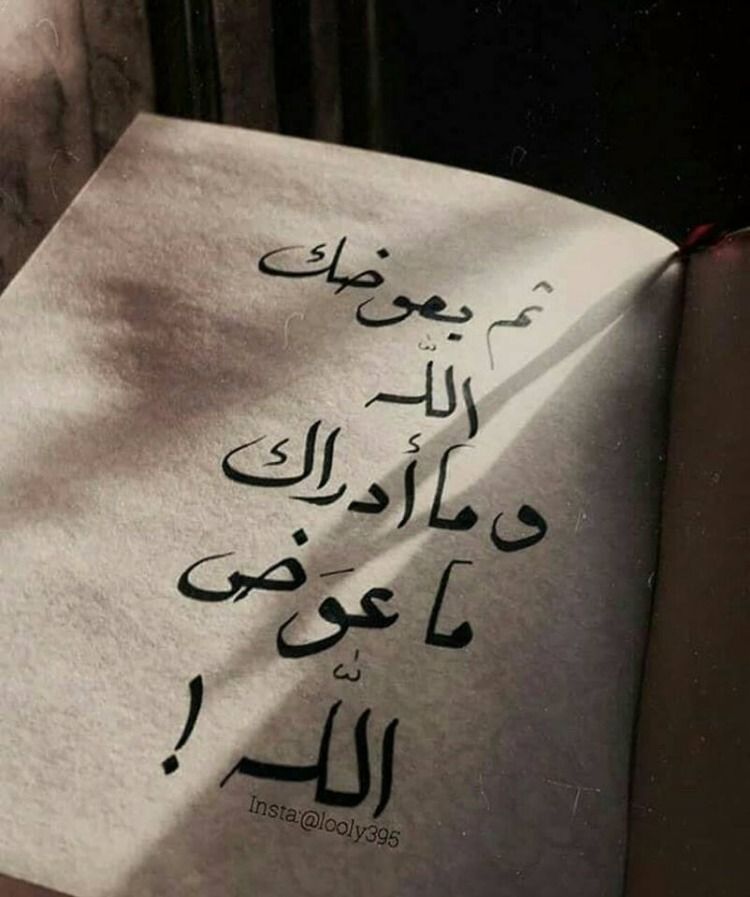 ثم يعوضك
اللّه
وما أدراك
ما عوَض
اللّه !
Insta:@looly395